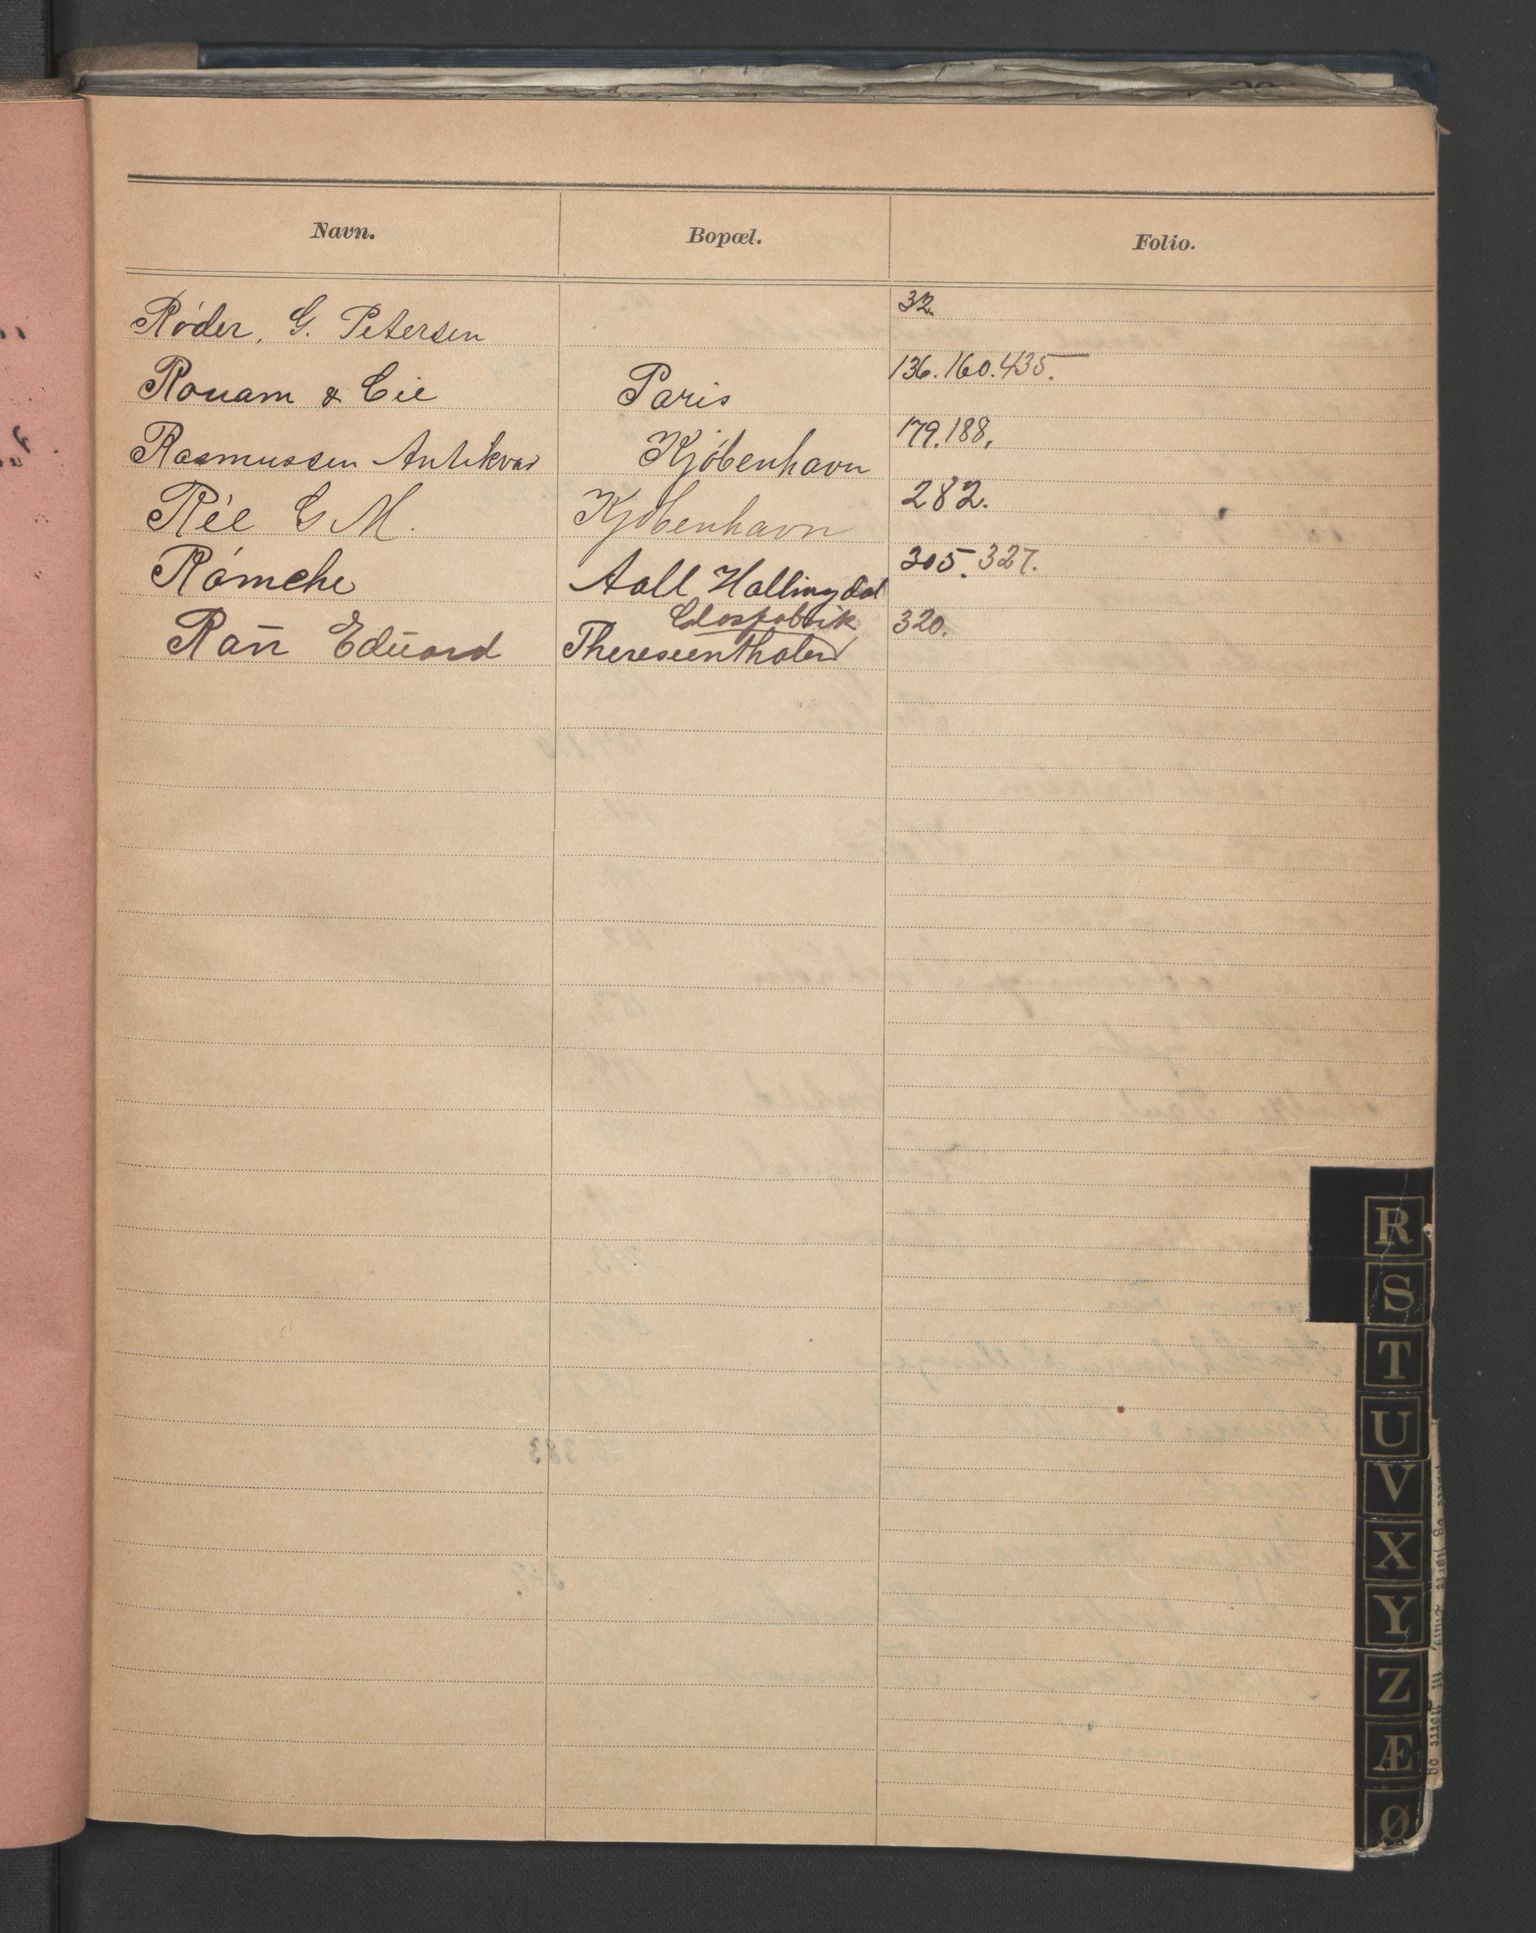 Navn. Bopæl. Folio.
Røder, G. Petersen 32.
Rouam & Cie Paris 136. 160. 435.
Rasmussen Antikvar Kjøbenhavn 179. 188.
Rée G M. Kjøbenhavn 282.
Römcke Aall Hallingdal 305. 327.
Glasfabrik
Rau Eduard Theresienthaler 320.
R
S
T
U
V
X
Y
Z
Æ
Ø